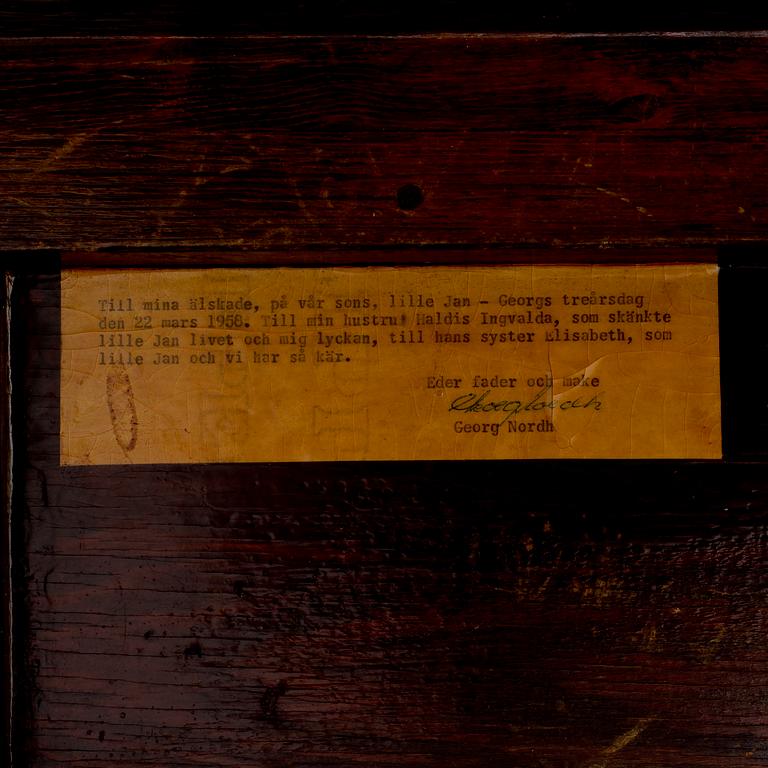 Till mina älskade, på vår sons, lille Jan - Georgs treårsdag
den 22 mars 1958. Till min hustru Haldis Ingvalda, som skänkte
lille Jan livet och mig lyckan, till hans syster Elisabeth, som
lille Jan och vi har så kär.
Eder fader och make
Georg Nordh
Georg Nordh